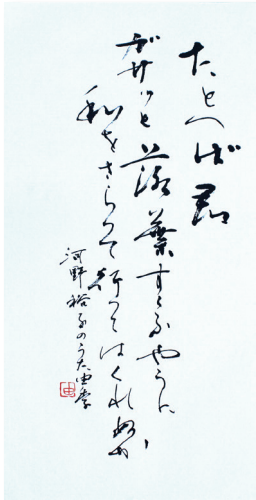 たとへば君
ガサッと落葉すくふやうに
私をさらつて行つてはくれぬか
河野裕子のうた